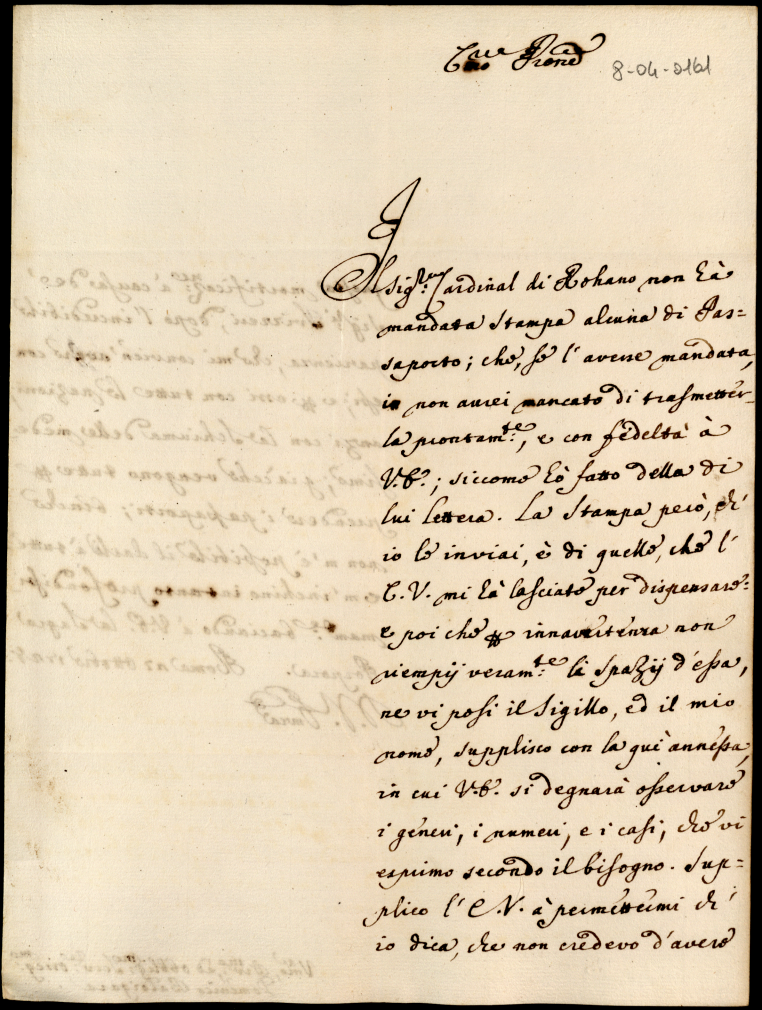 Em.mo Prone
8-04-0161
Il Sig.r Cardinal di Rohano non hà
mandata stampa alcuna di Pas=
saporto; che, se l'avesse mandata,
io non aurei mancato di trasmetter=
la prontam.te, e con fedeltà à
V.E.; siccome hò fatto della di
lui lettera. La stampa però, ch'
io le inviai, è di quelle, che l'
E.V. mi hà lasciate per dispensare:
e poiche innavertenza non
riempij veram.te li spazij d'essa,
ne vi posi il Sigillo, ed il mio
nome, supplisco con la qui annessa,
in cui V.E. si degnarà osservare
i generi, i numeri, e i casi, che vi
esprimo secondo il bisogno. Sup=
plico l'E.V. à permettermi ch'
io dica, che non credevo d'avere